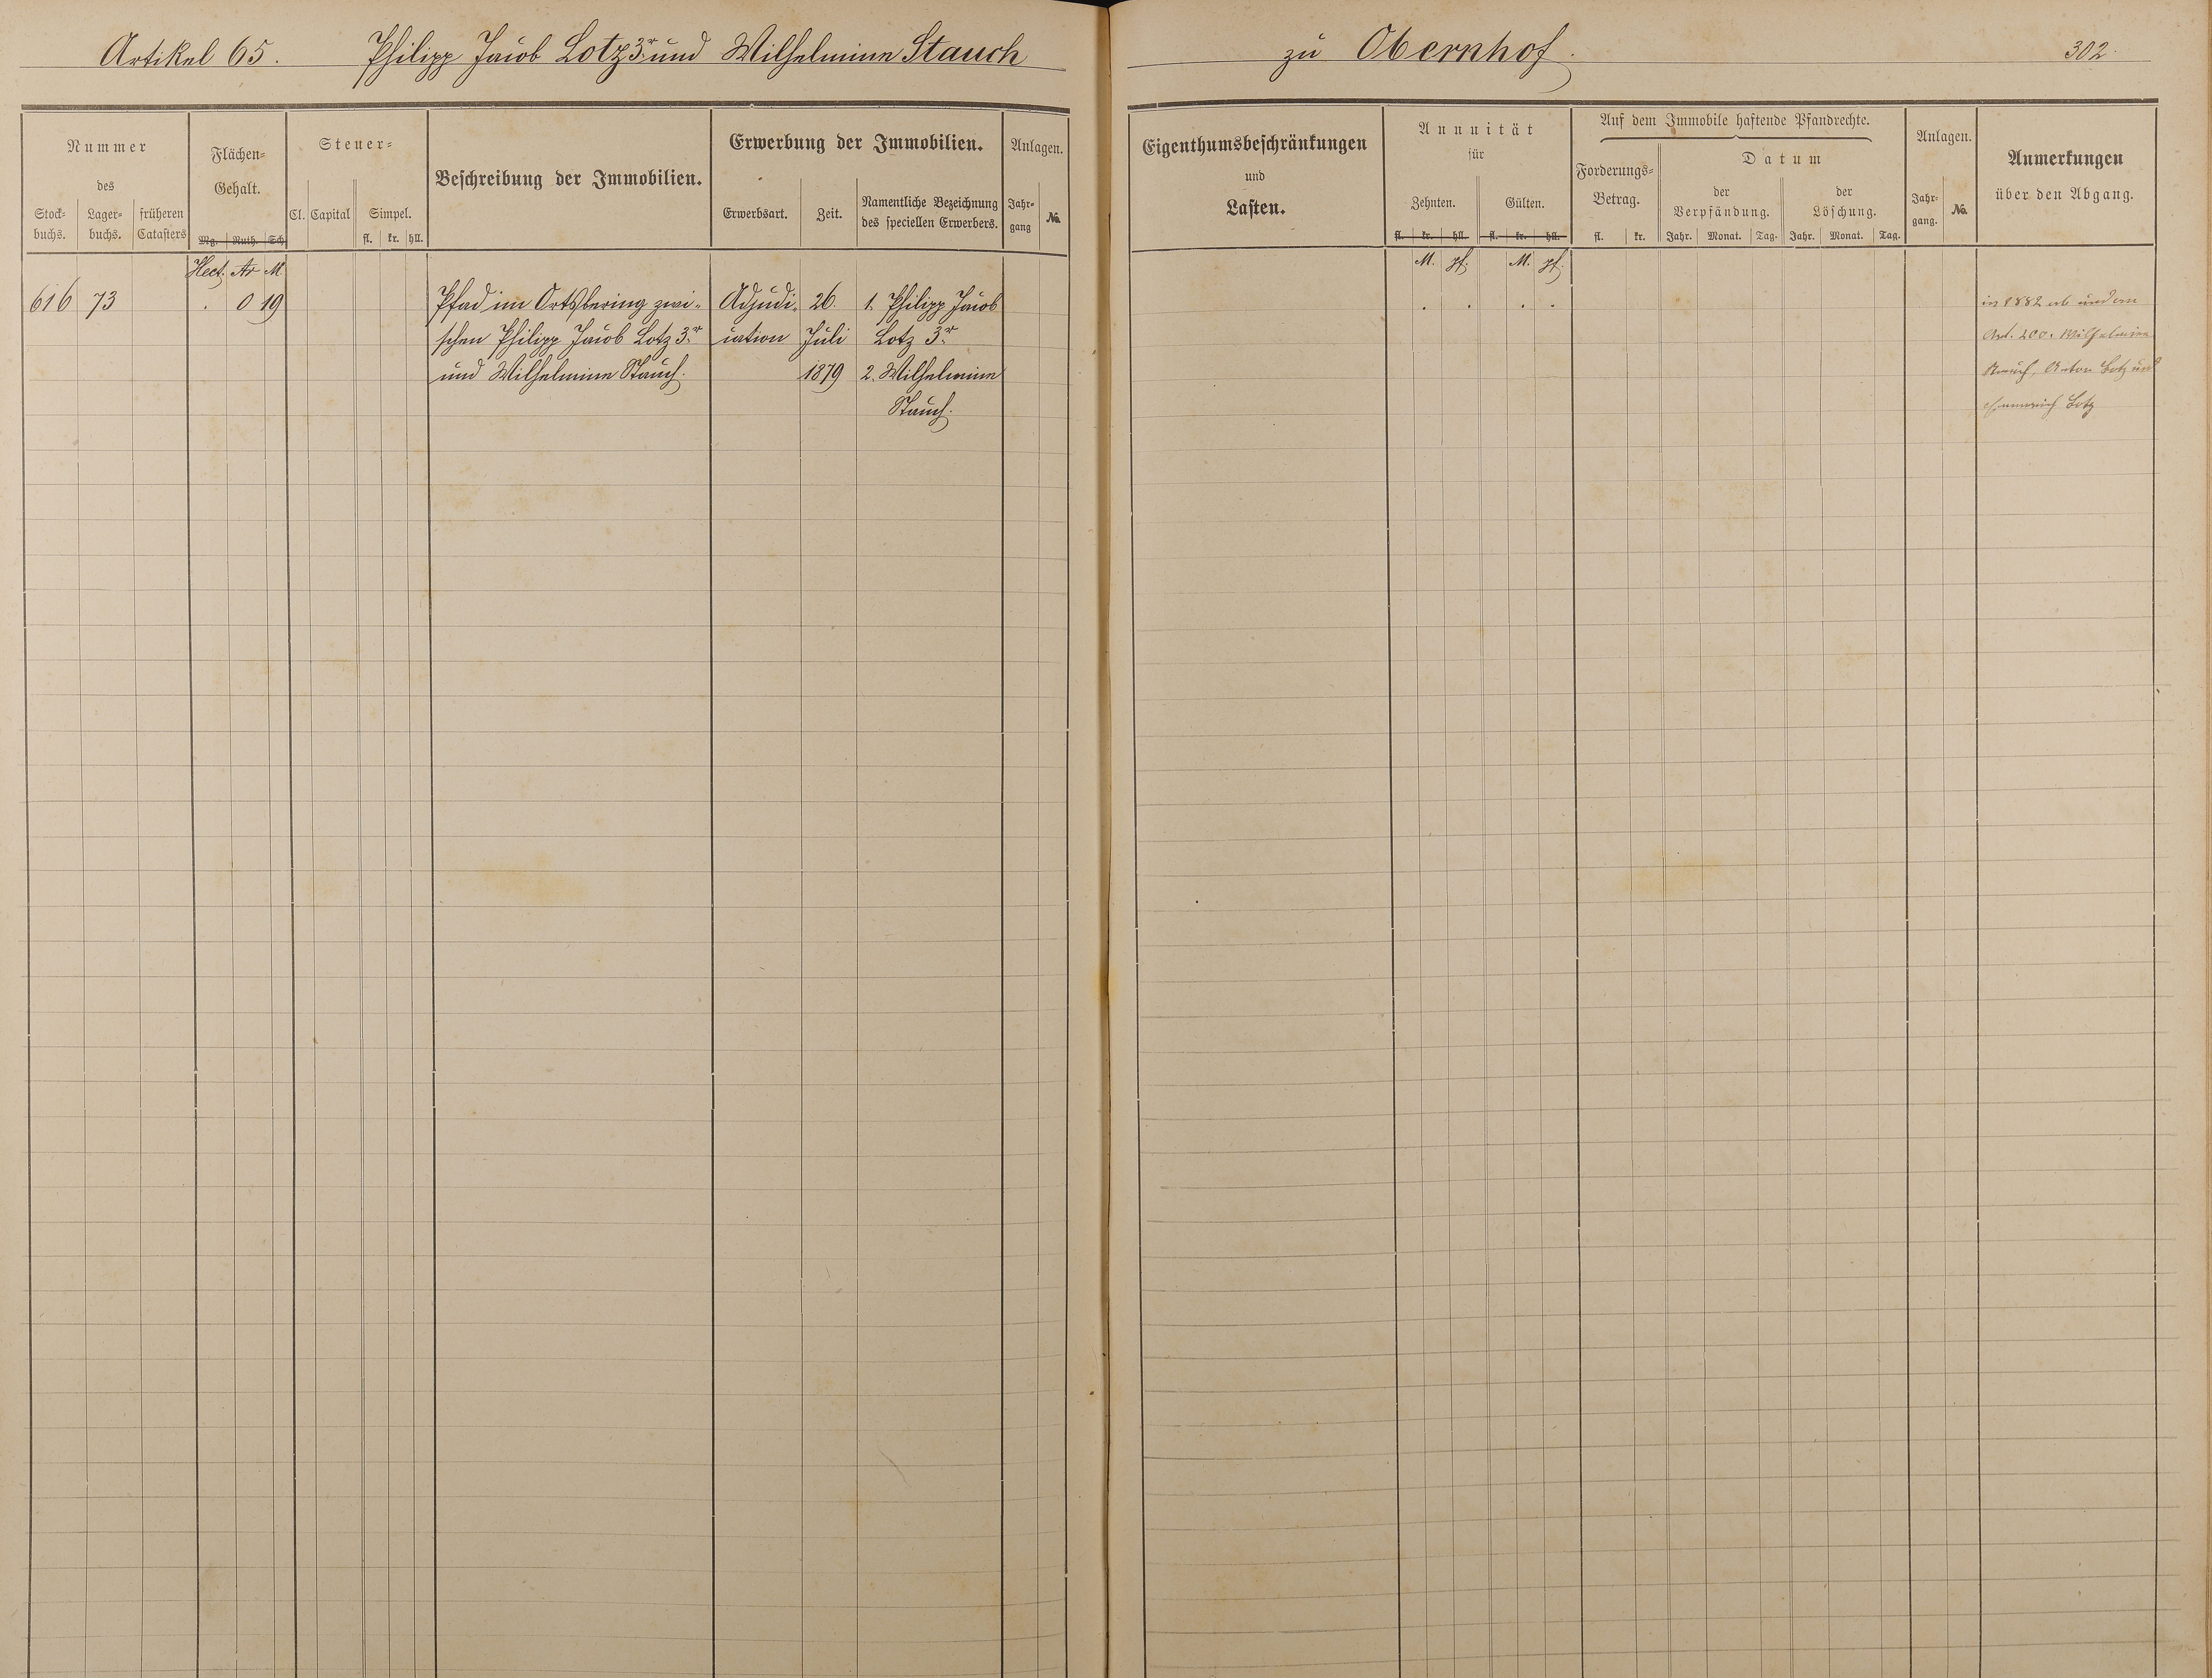 Artikel 65. Philipp Jacob Lotz 3r und Wilhelmine Stauch
zu Obernhof. 302.
Nummer
des
Stock-
buchs.
Lager-
buchs.
früheren
Catasters
Flächen-
Gehalt.
Mg. Ruth. Sch
Steuer-
Cl. Capital Simpel.
fl. kr. hll.
Beschreibung der Immobilien.
Erwerbung der Immobilien.
Erwerbsart. Zeit.
Namentliche Bezeichnung
des speciellen Erwerbers.
Anlagen.
Jahr-
gang
No.
Hect. Ar M
616 73 . 0 19 Pfad im Ortsbering zwi- Adjudi- 26. 1. Philipp Jacob
schen Philipp Jacob Lotz 3r cation Juli Lotz 3r
und Wilhelmine Stauch. 1879 2. Wilhelmine
Stauch.
Eigenthumsbeschränkungen
und
Lasten.
Annuität
für
Zehnten. Gülten.
fl. kr. hll. fl. kr. hll.
Auf dem Immobile haftende Pfandrechte.
Forderungs-
Betrag.
fl. kr.
Datum
der
Verpfändung.
der
Löschung.
Jahr. Monat. Tag. Jahr. Monat. Tag.
Anlagen.
Jahr-
gang.
No.
Anmerkungen
über den Abgang.
M. Pf. M. Pf.
. . . .
in 1882 ab
Art. 200. Wilhelmine
Stauch, Anton Lotz und
Lotz